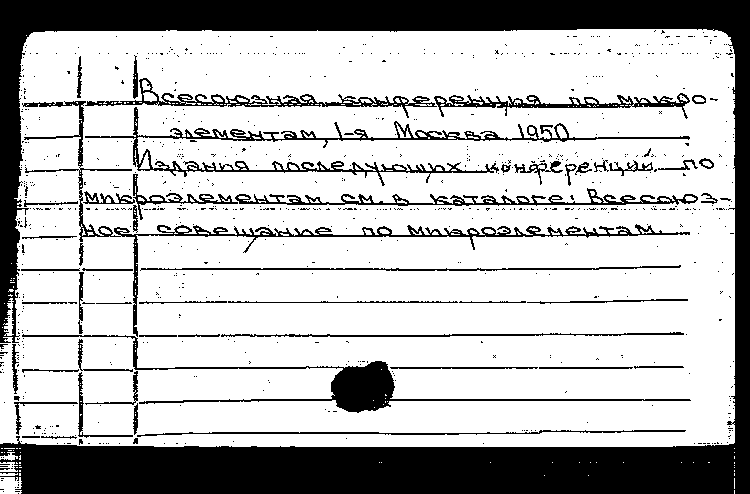 Всесоюзная конференция по микро-
элементам, 1-я. Москва 1950.
Издания последующих конференций по
микроэлементам см. в каталоге: Всесоюз-
ное совещание по микроэлементам.